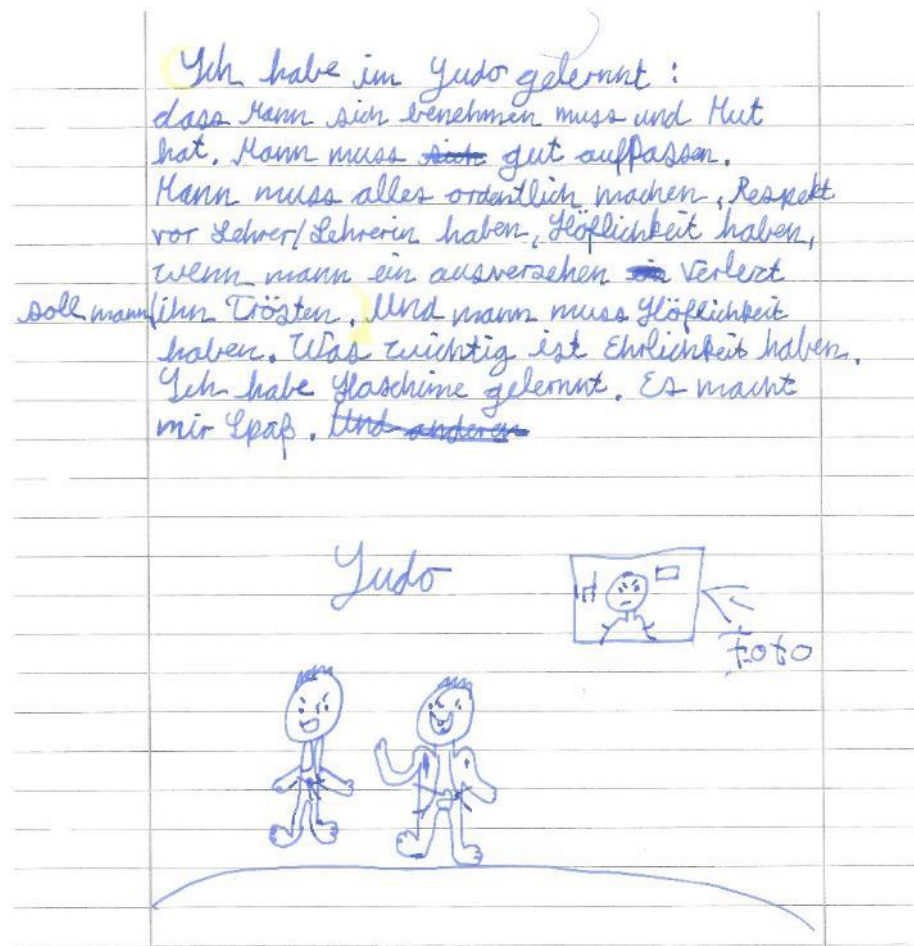 Ich habe im Judo gelernnt :
dass Mann sich benehmen muss und Mut
hat. Mann muss sich gut aufpassen.
Mann muss alles ordentlich machen, Respekt
vor Lehrer/Lehrerin haben, Höflichkeit haben,
wenn mann ein ausversehen Verlezt
soll mann ihn Trösten. Und mann muss Höflichkeit
haben. Was wichtig ist Ehrlichkeit haben.
Ich habe Haschime gelernnt. Es macht
mir Spaß. Und anderen
Judo
Foto